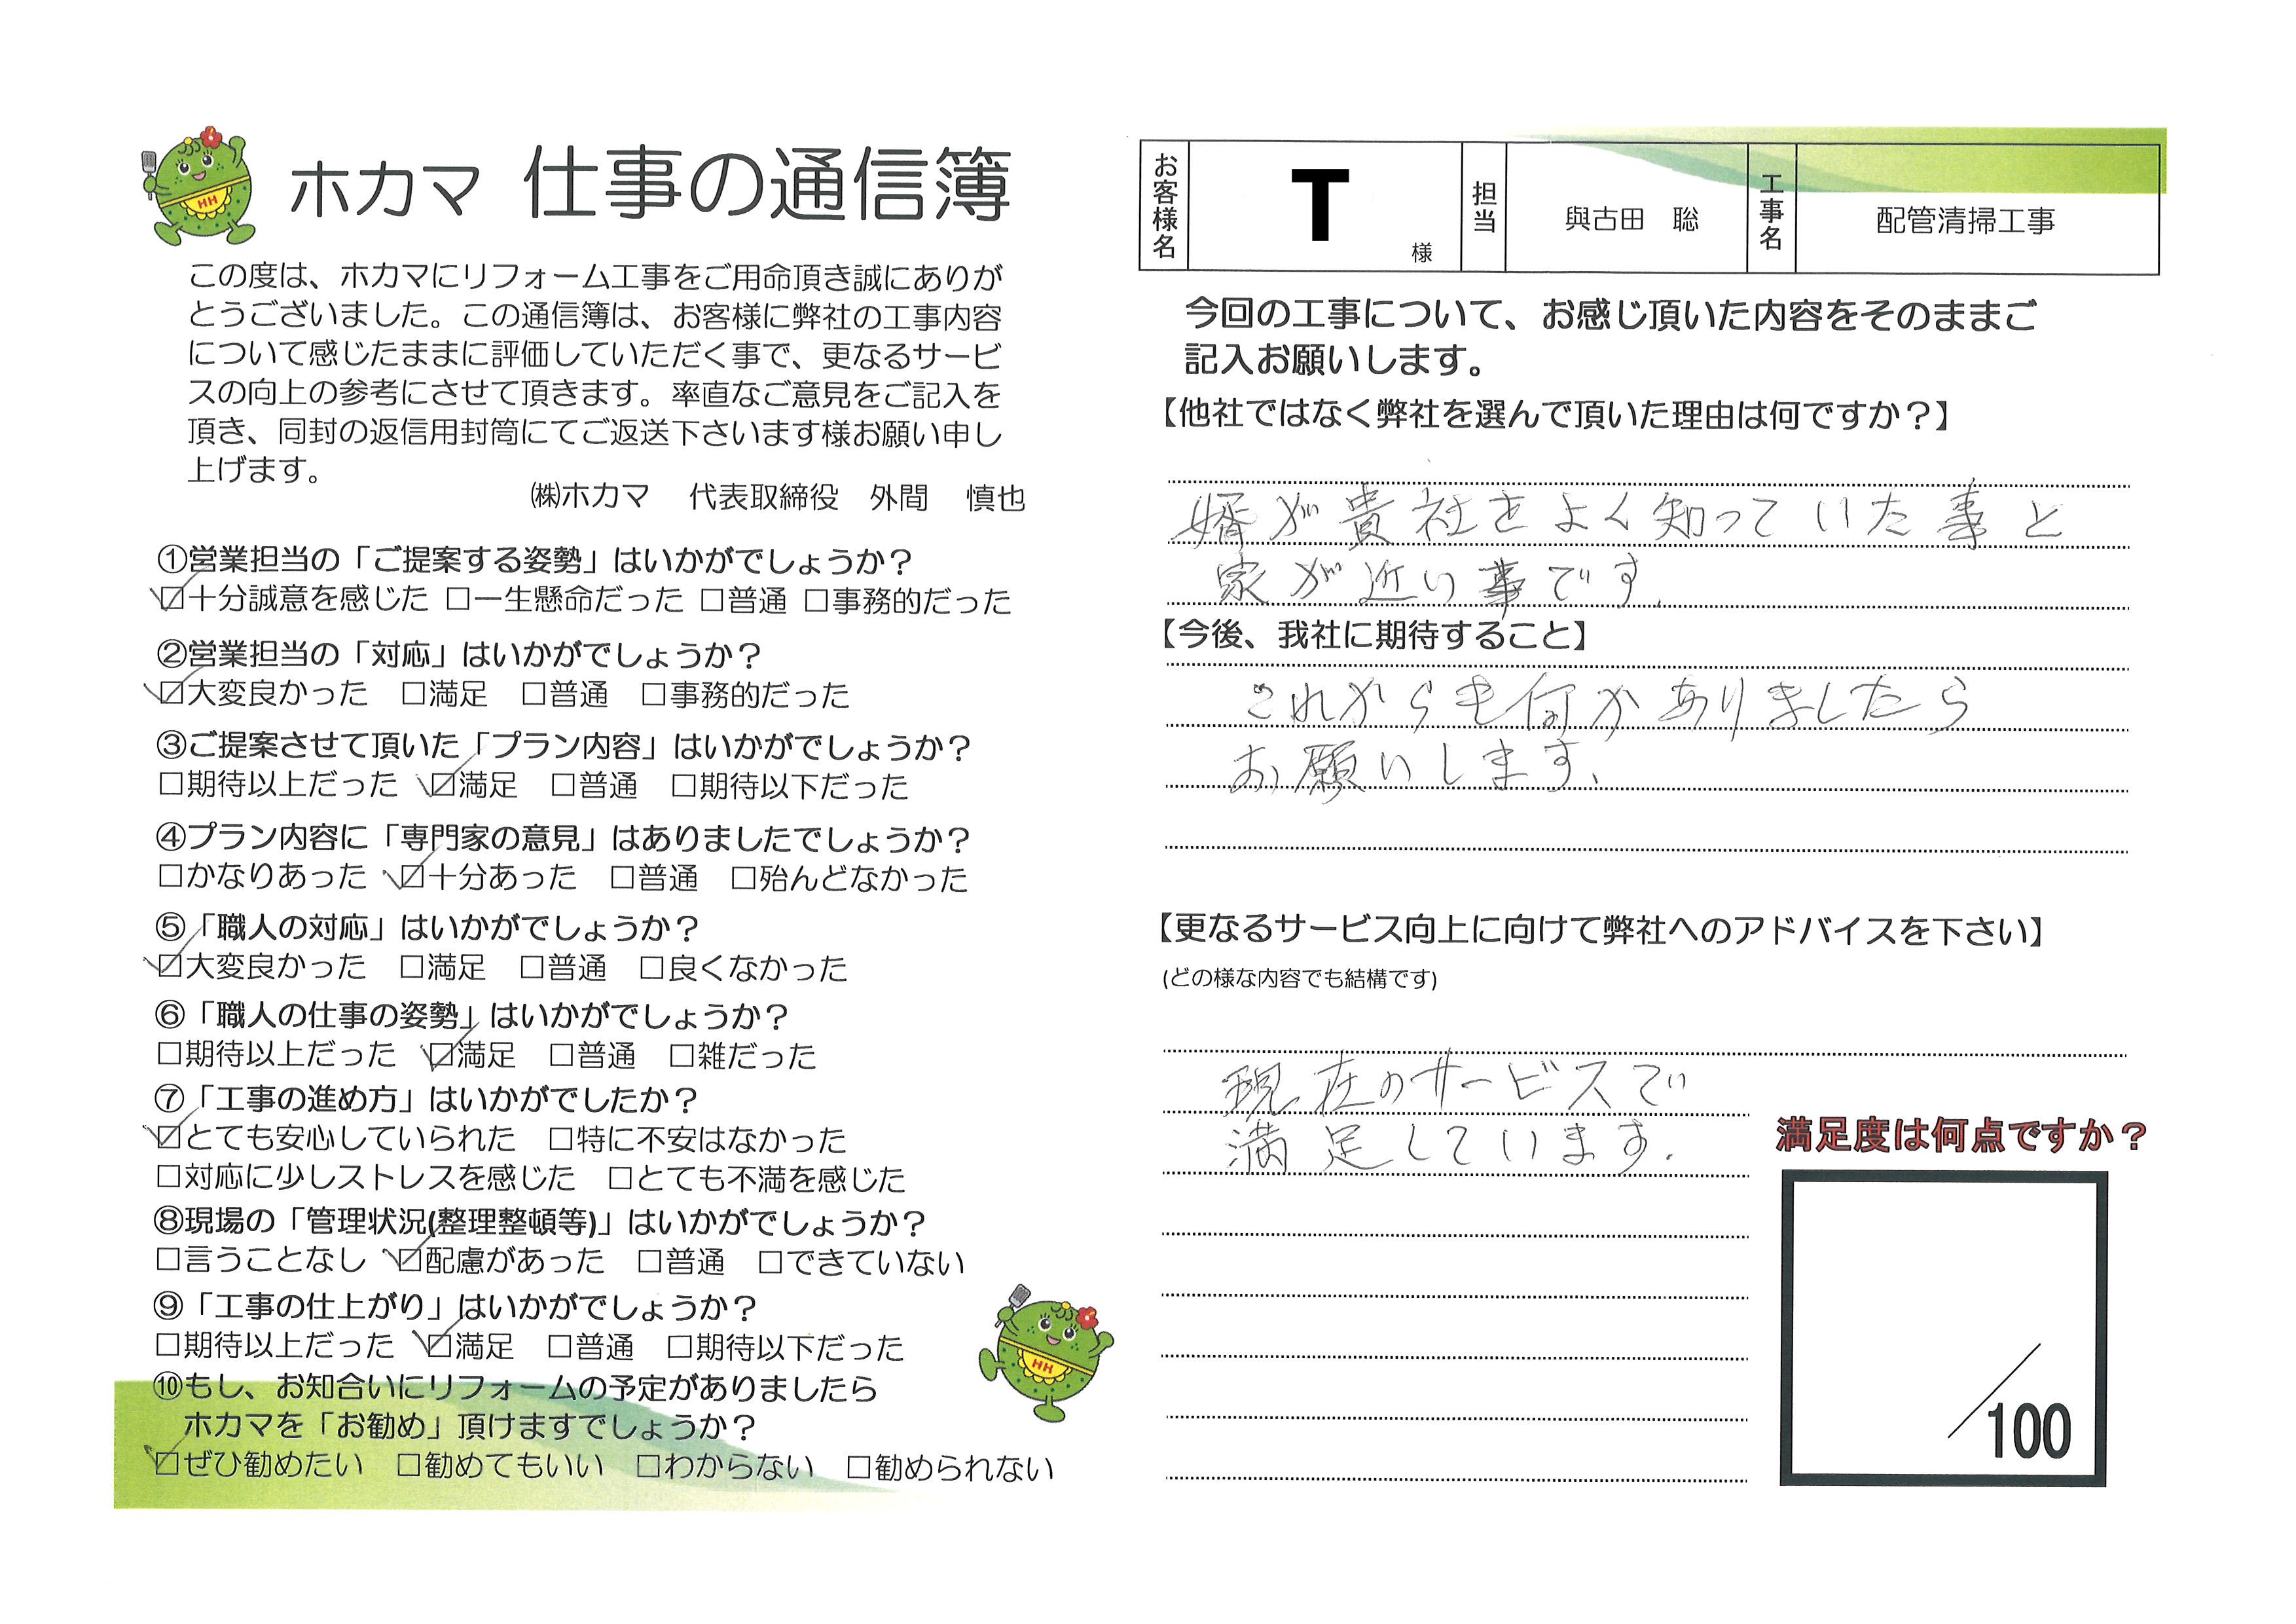 ホカマ 仕事の通信簿
この度は、ホカマにリフォーム工事をご用命頂き誠にありが
とうございました。この通信簿は、お客様に弊社の工事内容
について感じたままに評価していただく事で、更なるサービ
スの向上の参考にさせて頂きます。率直なご意見をご記入を
頂き、同封の返信用封筒にてご返送下さいます様お願い申し
上げます。
㈱ホカマ 代表取締役 外間 慎也
①営業担当の「ご提案する姿勢」はいかがでしょうか？
☑十分誠意を感じた □一生懸命だった □普通 □事務的だった
②営業担当の「対応」はいかがでしょうか？
☑大変良かった □満足 □普通 □事務的だった
③ご提案させて頂いた「プラン内容」はいかがでしょうか？
□期待以上だった ☑満足 □普通 □期待以下だった
④プラン内容に「専門家の意見」はありましたでしょうか？
□かなりあった ☑十分あった □普通 □殆んどなかった
⑤「職人の対応」はいかがでしょうか？
☑大変良かった □満足 □普通 □良くなかった
⑥「職人の仕事の姿勢」はいかがでしょうか？
□期待以上だった ☑満足 □普通 □雑だった
⑦「工事の進め方」はいかがでしたか？
☑とても安心していられた □特に不安はなかった
□対応に少しストレスを感じた □とても不満を感じた
⑧現場の「管理状況(整理整頓等)」はいかがでしょうか？
□言うことなし ☑配慮があった □普通 □できていない
⑨「工事の仕上がり」はいかがでしょうか？
□期待以上だった ☑満足 □普通 □期待以下だった
⑩もし、お知合いにリフォームの予定がありましたら
ホカマを「お勧め」頂けますでしょうか？
☑ぜひ勧めたい □勧めてもいい □わからない □勧められない
お客様名 T 様 担当 與古田 聡 工事名 配管清掃工事
今回の工事について、お感じ頂いた内容をそのままご
記入お願いします。
【他社ではなく弊社を選んで頂いた理由は何ですか？】
婿が貴社をよく知っていた事と
家が近い事です.
【今後、我社に期待すること】
これからも何かありましたら
お願いします、
【更なるサービス向上に向けて弊社へのアドバイスを下さい】
(どの様な内容でも結構です)
現在のサービスで
満足しています.
満足度は何点ですか？
/100
HH
HH